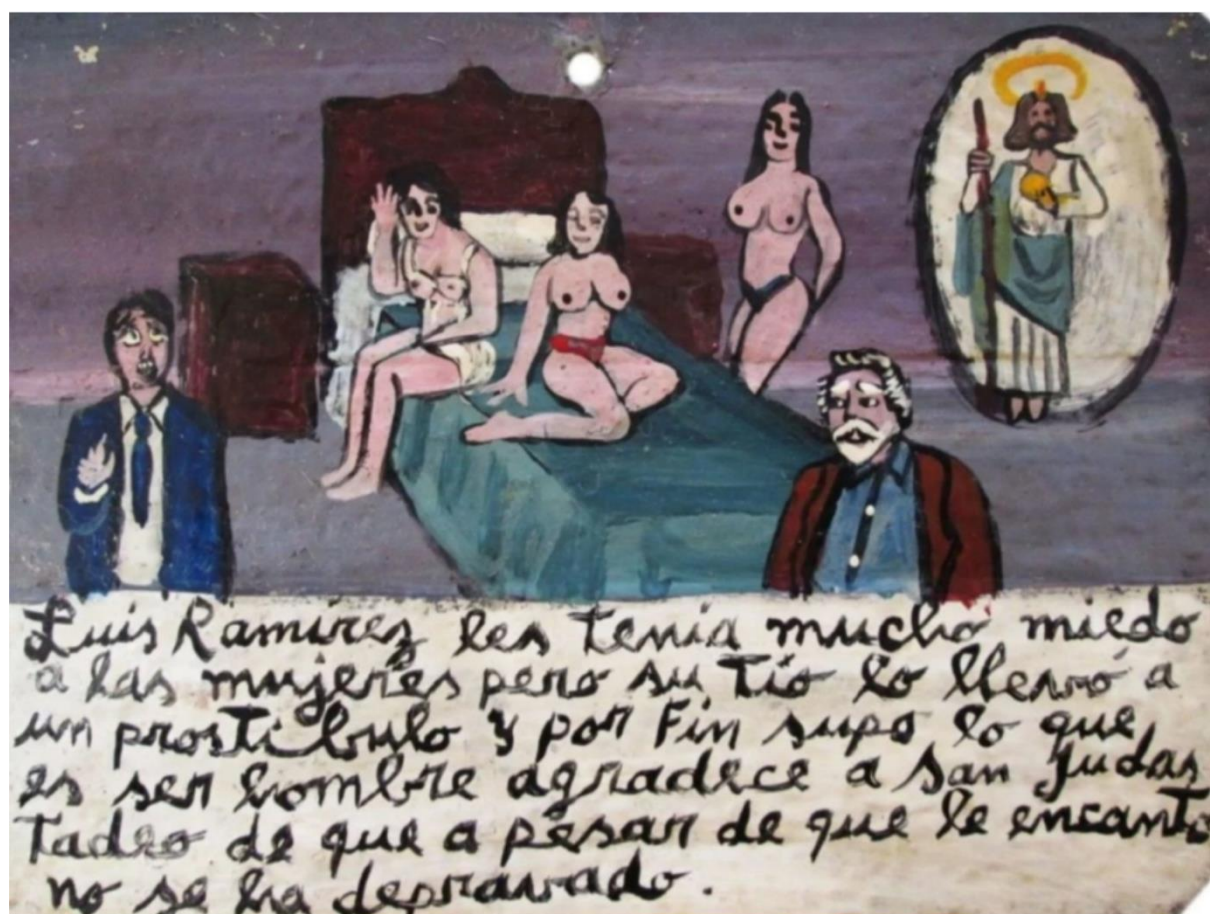 Luis Ramirez les tenia mucho miedo
a las mujeres pero su tío lo llevó a
un prostibulo y por Fin supo lo que
es ser hombre agradece a San Judas
Tadeo de que a pesar de que le encantó
no se ha depravado.